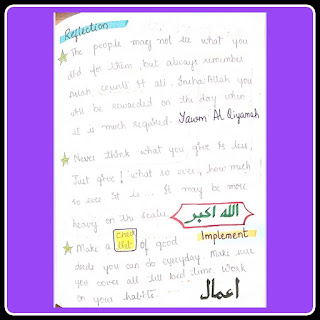 Reflection
The people may not see what you
did for them, but always remember
Allah counts it all. InshaAllah you
will be rewarded on the day when
it is much required. Yawm Al Qiyamah
Never think what you give is less,
Just give! what so ever, how much
so ever it is ... It may be more
heavy on the scales.
الله اكبر
Implement
Make a check list of good
deeds you can do everyday. Make sure
you cover all till bed time. Work
on your habits.
اعمال